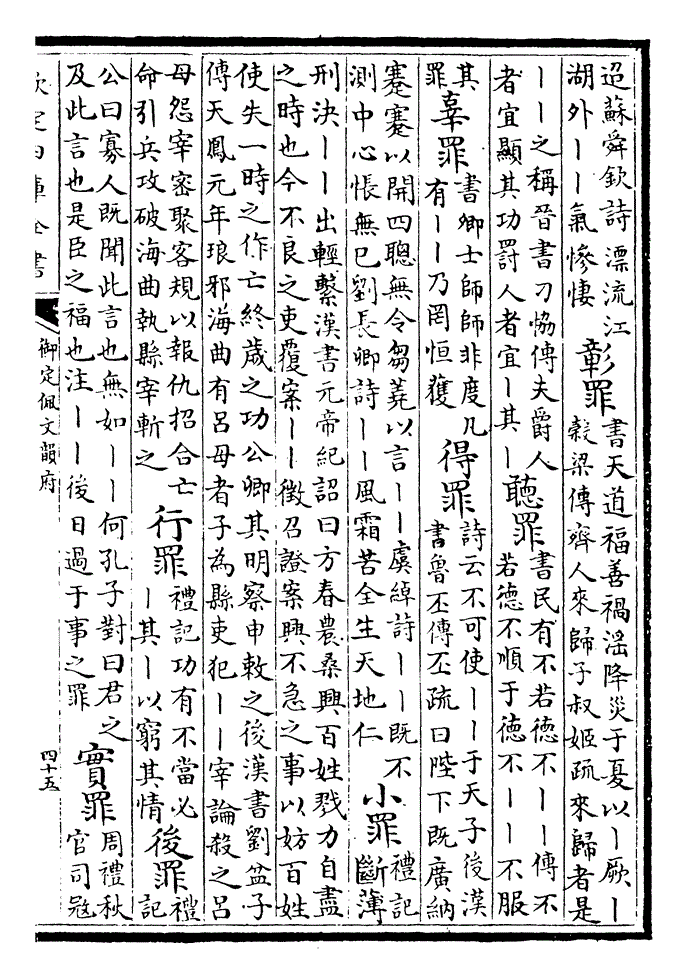 迢蘇舜欽詩漂流江
湖外丨丨氣慘悽
彰罪
書天道福善禍滛降災于夏以丨厥丨
榖梁傳齊人來歸子叔姬疏來歸者是
丨丨之稱晉書刁恊傳夫爵人
者宜顯其功罰人者宜丨其丨
聽罪
書民有不若徳不丨丨傳不
若徳不順于徳不丨丨不服
其
罪
辜罪
書卿士師師非度凡
有丨丨乃罔恒獲
得罪
詩云不可使丨丨于天子後漢
書魯丕傳丕疏曰陛下既廣納
蹇蹇以開四聰無令芻蕘以言丨丨虞綽詩丨丨既不
測中心悵無已劉長卿詩丨丨風霜苦全生天地仁
小罪
禮記
斷薄
刑決丨丨出輕繫漢書元帝紀詔曰方春農桑興百姓戮力自盡
之時也今不良之吏覆案丨丨徵召證案興不急之事以妨百姓
使失一時之作亡終歲之功公卿其明察申敕之後漢書劉盆子
傳天鳳元年琅邪海曲有呂母者子為縣吏犯丨丨宰論殺之呂
母怨宰密聚客規以報仇招合亡
命引兵攻破海曲執縣宰斬之
行罪
禮記功有不當必
丨其丨以窮其情
後罪
禮
記
公曰寡人既聞此言也無如丨丨何孔子對曰君之
及此言也是臣之福也注丨丨後日過于事之罪
實罪
周禮秋
官司冦
欽定四庫全書
御定佩文韻府
四十五